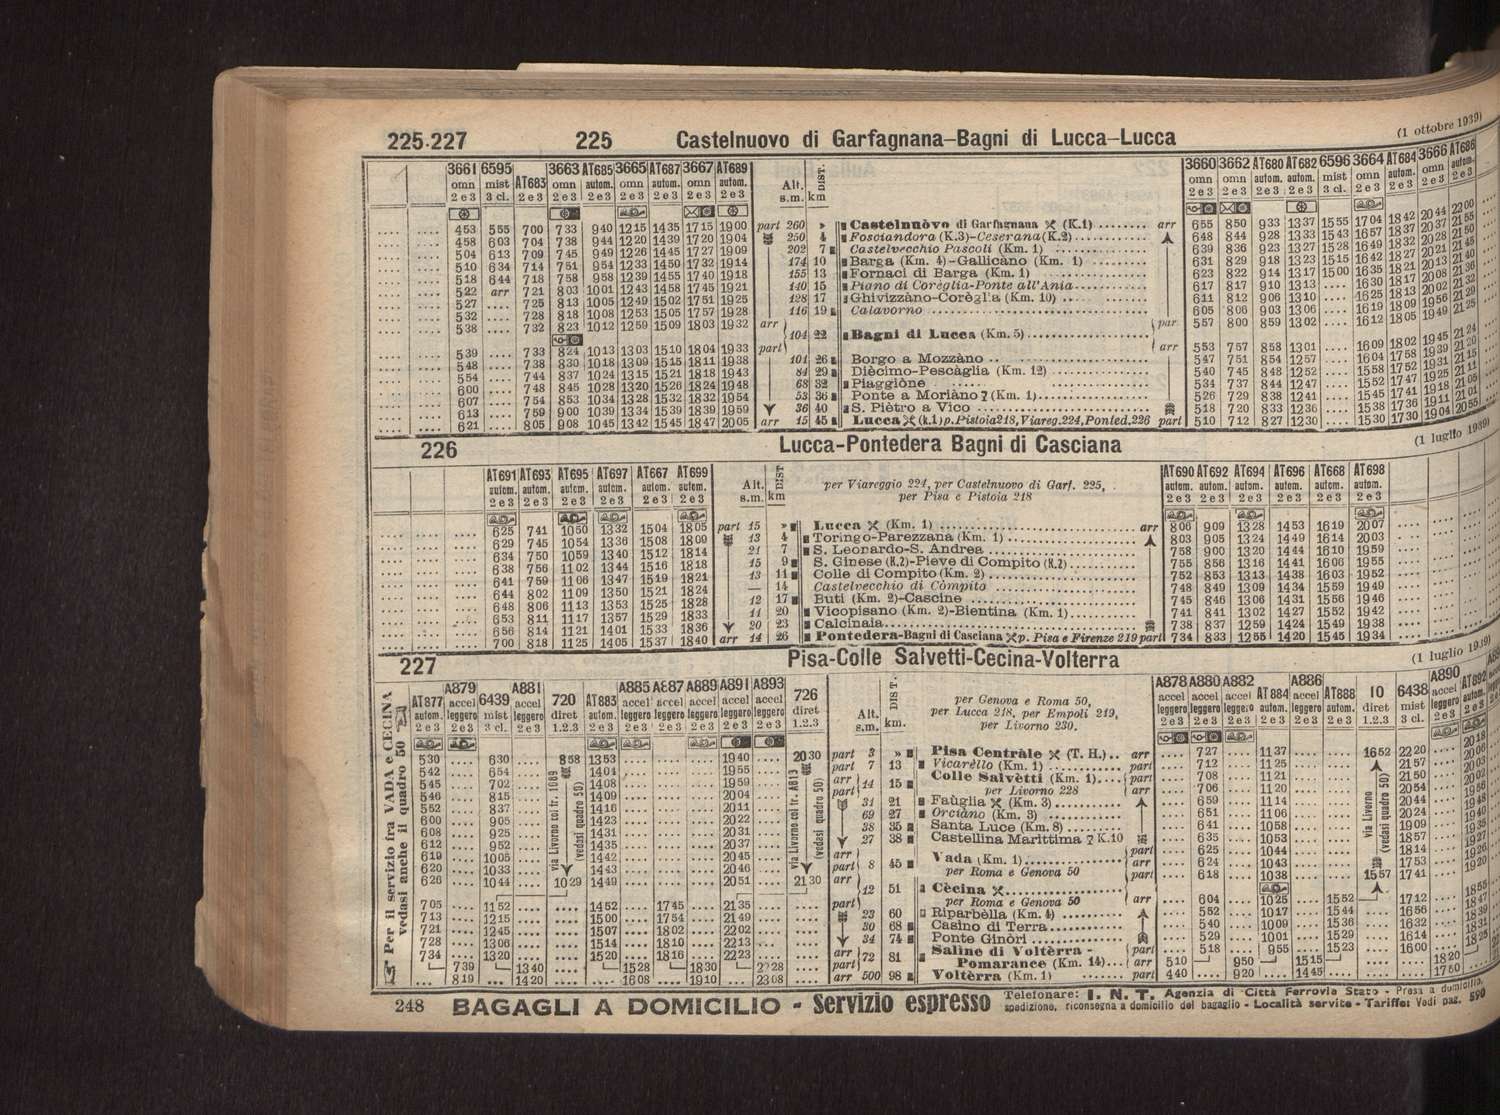 225-227 225 Castelnuovo di Garfagnana-Bagni di Lucca-Lucca (1 ottobre 1939)
3661 6595 AT683 3663 AT685 3665 AT687 3667 AT689 Alt. DIST. 3660 3662 AT680 AT682 6596 3664 AT684 3666 AT686
omn mist omn autom. omn autom. omn autom. s.m. km omn omn autom. autom. mist omn autom. omn autom.
2 e 3 3 cl. 2 e 3 2 e 3 2 e 3 2 e 3 2 e 3 2 e 3 2 e 3 2 e 3 2 e 3 2 e 3 2 e 3 3 cl. 2 e 3 2 e 3 2 e 3 2 e 3
453 555 700 733 940 1215 1435 1715 1900 part 260 » Castelnuòvo di Garfagnana (K.1) arr 655 850 933 1337 1555 1704 1842 2044 2200
458 603 704 738 944 1220 1439 1720 1904 250 4 Fosciandora (K.3)-Ceserana (K.2) 648 844 928 1333 1543 1657 1837 2037 2155
504 613 709 745 949 1226 1445 1727 1909 202 7 Castelvecchio Pascoli (Km. 1) 639 836 923 1327 1528 1649 1832 2028 2150
510 634 714 751 954 1233 1450 1732 1914 174 10 Barga (Km. 4)-Gallicàno (Km. 1) 631 829 918 1323 1515 1642 1827 2021 2145
518 644 718 758 958 1239 1455 1740 1918 155 13 Fornaci di Barga (Km. 1) 623 822 914 1317 1500 1635 1821 2013 2140
522 arr 721 803 1001 1243 1458 1745 1921 140 15 Piano di Corèglia-Ponte all'Ania 617 817 910 1313 .... 1630 1817 2008 2136
527 .... 725 813 1005 1249 1502 1751 1925 128 17 Ghivizzàno-Corèglia (Km. 10) 611 812 906 1310 .... 1625 1813 2002 2132
532 .... 728 818 1008 1253 1505 1757 1928 116 19 Calavorno 605 806 903 1306 .... 1619 1809 1956 2129
538 .... 732 823 1012 1259 1509 1803 1932 arr 104 22 Bagni di Lucca (Km. 5) 557 800 859 1302 .... 1612 1805 1949 2125
539 .... 733 824 1013 1303 1510 1804 1933 part arr 553 757 858 1301 .... 1609 1802 1945 2124
548 .... 738 830 1018 1309 1515 1811 1938 101 26 Borgo a Mozzàno 547 751 854 1257 .... 1604 1758 1939 2120
554 .... 744 837 1024 1315 1521 1818 1943 84 29 Diècimo-Pescàglia (Km. 12) 540 745 848 1252 .... 1558 1752 1931 2115
600 .... 748 845 1028 1320 1526 1824 1948 68 32 Piaggiòne 534 737 844 1247 .... 1552 1747 1925 2111
607 .... 754 853 1034 1328 1532 1832 1954 53 36 Ponte a Moriàno ? (Km. 1) 526 729 838 1241 .... 1545 1741 1918 2105
613 .... 759 900 1039 1334 1539 1839 1959 36 40 S. Piètro a Vico 518 720 833 1236 .... 1538 1736 1911 2101
621 .... 805 908 1045 1342 1545 1847 2005 arr 15 45 Lucca (k.1) p. Pistoia 218, Viareg. 224, Ponted. 226 part 510 712 827 1230 .... 1530 1730 1904 2055
226 Lucca-Pontedera Bagni di Casciana (1 luglio 1939)
AT691 AT693 AT695 AT697 AT667 AT699 Alt. DIST per Viareggio 224, per Castelnuovo di Garf. 225, AT690 AT692 AT694 AT696 AT668 AT698
autom. autom. autom. autom. autom. autom. s.m. km per Pisa e Pistoia 218 autom. autom. autom. autom. autom. autom.
2 e 3 2 e 3 2 e 3 2 e 3 2 e 3 2 e 3 2 e 3 2 e 3 2 e 3 2 e 3 2 e 3 2 e 3
625 741 1050 1332 1504 1805 part 15 » Lucca (Km. 1) arr 806 909 1328 1453 1619 2007
629 745 1054 1336 1508 1809 13 4 Toringo-Parezzana (Km. 1) 803 905 1324 1449 1614 2003
634 750 1059 1340 1512 1814 21 7 S. Leonardo-S. Andrea 758 900 1320 1444 1610 1959
638 756 1102 1344 1516 1818 15 9 S. Ginese (K.2)-Pieve di Compito (K.2) 755 856 1316 1441 1606 1955
641 759 1106 1347 1519 1821 13 11 Colle di Compito (Km. 2) 752 853 1313 1438 1603 1952
644 802 1109 1350 1521 1824 — 14 Castelvecchio di Còmpito 748 849 1309 1434 1559 1949
648 806 1113 1353 1525 1828 12 17 Buti (Km. 2)-Cascine 745 846 1306 1431 1556 1946
653 811 1117 1357 1529 1833 11 20 Vicopisano (Km. 2)-Bientina (Km. 1) 741 841 1302 1427 1552 1942
656 814 1121 1401 1533 1836 20 23 Calcinaia 738 837 1259 1424 1549 1938
700 818 1125 1405 1537 1840 arr 14 26 Pontedera-Bagni di Casciana p. Pisa e Firenze 219 part 734 833 1255 1420 1545 1934
227 Pisa-Colle Salvetti-Cecina-Volterra (1 luglio 1939)
Per il servizio fra VADA e CECINA
vedasi anche il quadro 50
AT877 A879 6439 A881 720 AT883 A885 A887 A889 A891 A893 726 Alt. DIST. per Genova e Roma 50, A878 A880 A882 AT884 A886 AT888 10 6438 A890 AT892
autom. accel leggero mist accel leggero diret autom. accel leggero accel leggero accel leggero accel leggero accel leggero diret s.m. km. per Lucca 218, per Empoli 219, accel leggero accel leggero accel leggero autom. accel leggero autom. diret mist accel leggero autom.
2 e 3 2 e 3 3 cl. 2 e 3 1.2.3 2 e 3 2 e 3 2 e 3 2 e 3 2 e 3 2 e 3 1.2.3 per Livorno 230. 2 e 3 2 e 3 2 e 3 2 e 3 2 e 3 2 e 3 1.2.3 3 cl. 2 e 3 2 e 3
via Livorno col tr. 1089 (vedasi quadro 50)
via Livorno col tr. A813 (vedasi quadro 50)
via Livorno (vedasi quadro 50)
530 .... 630 .... 858 1353 .... .... .... 1940 .... 2030 part 3 » Pisa Centràle (T. H.) arr .... 727 .... 1137 .... .... 1652 2220 .... 2018
542 .... 654 .... 1404 .... .... .... 1955 .... part 7 13 Vicarèllo (Km. 1) part .... 712 .... 1125 .... .... 2157 .... 2006
545 .... 702 .... 1408 .... .... .... 1959 .... arr 14 15 Colle Salvètti (Km. 1) part .... 708 .... 1121 .... .... 2150 .... 2002
546 .... 815 .... 1409 .... .... .... 2004 .... part per Livorno 228 arr .... 706 .... 1120 .... .... 2054
552 .... 837 .... 1416 .... .... .... 2011 .... 31 21 Faùglia (Km. 3) .... 659 .... 1114 .... .... 2044
600 .... 905 .... 1423 .... .... .... 2022 .... 69 27 Orciàno (Km. 3) .... 651 .... 1106 .... .... 2024
608 .... 925 .... 1431 .... .... .... 2031 .... 38 35 Santa Luce (Km. 8) .... 641 .... 1058 .... .... 1909
612 .... 952 .... 1435 .... .... .... 2037 .... 27 38 Castellina Marittima ? K.10 .... 635 .... 1053 .... .... 1857
619 .... 1005 .... 1442 .... .... .... 2045 .... arr 8 45 Vada (Km. 1) part .... 625 .... 1044 .... .... 1814
620 .... 1033 .... 1443 .... .... .... 2046 .... part per Roma e Genova 50 arr .... 624 .... 1043 .... .... 1753
626 .... 1044 .... 1029 1449 .... .... .... 2051 .... 2130 arr 12 51 Cècina part .... 618 .... 1038 .... .... 1557 1741
705 .... 1152 .... .... 1452 .... 1745 .... 2135 .... part per Roma e Genova 50 arr .... 604 .... 1025 .... 1552 1712 .... 1855
713 .... 1215 .... .... 1500 .... 1754 .... 2149 .... 23 60 Riparbèlla (Km. 4) .... 552 .... 1017 .... 1544 .... 1656 .... 1847
721 .... 1245 .... .... 1507 .... 1802 .... 2202 .... 30 68 Casino di Terra .... 540 .... 1009 .... 1536 .... 1632 .... 1839
728 .... 1306 .... .... 1514 .... 1810 .... 2213 .... 34 74 Ponte Ginòri .... 529 .... 1001 .... 1529 .... 1614 .... 1831
734 .... 1320 .... .... 1520 .... 1816 .... 2223 .... arr 72 81 Saline di Voltèrra - part .... 518 .... 955 .... 1523 .... 1600 .... 1825
739 1340 1528 1830 2228 part Pomarance (Km. 14) arr 510 950 1515 1820
819 1420 1608 1910 2308 arr 500 98 Voltèrra (Km. 1) part 440 920 1445 1750
248 BAGAGLI A DOMICILIO - Servizio espresso Telefonare: I. N. T. Agenzia di Città Ferrovie Stato - Presa a domicilio,
spedizione, riconsegna a domicilio del bagaglio - Località servite - Tariffe: Vedi pag. 590